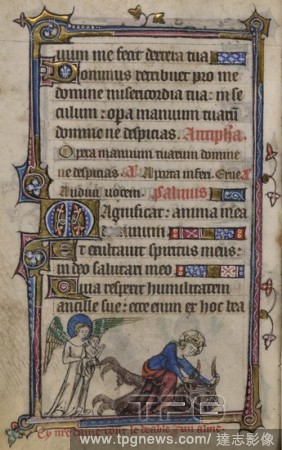 uum me fecit dextera tua
Dominus retribuet pro me
domine misericordia tua: in se
culum: opa manuum tuarum
domine ne despicias. Antipha.
Opera manuum tuarum domine
ne despicias. A porta inferi. Erue
Audivi vocem. psalmus
Magnificat: anima mea
dominum
Et exultavit spiritus meus:
in deo salutari meo
Quia respexit humilitatem
ancille sue: ecce enim ex hoc bea
TPG
www.tpgnews.com/達志影像